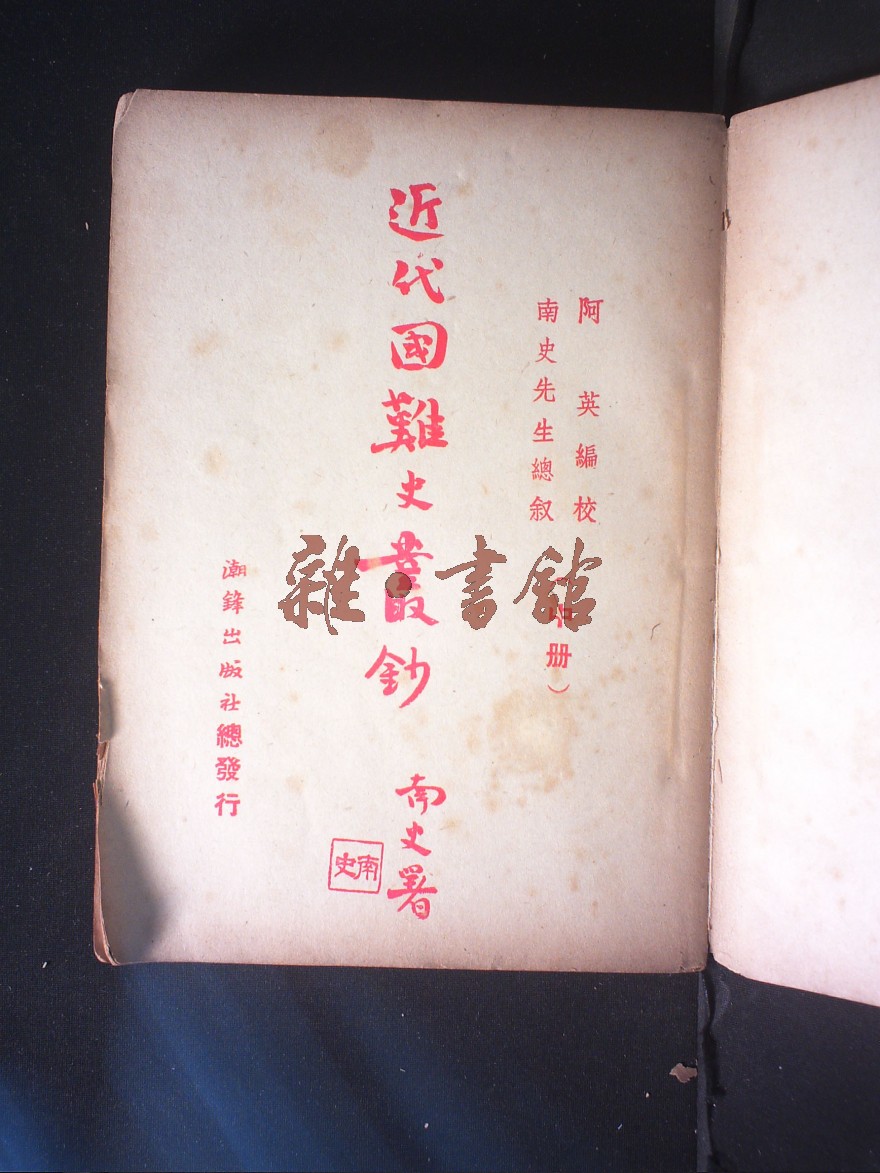 阿英編校
南史先生總叙
（中册）
近代國難史叢鈔
南史署
南史
潮鋒出版社總發行
雜·書館